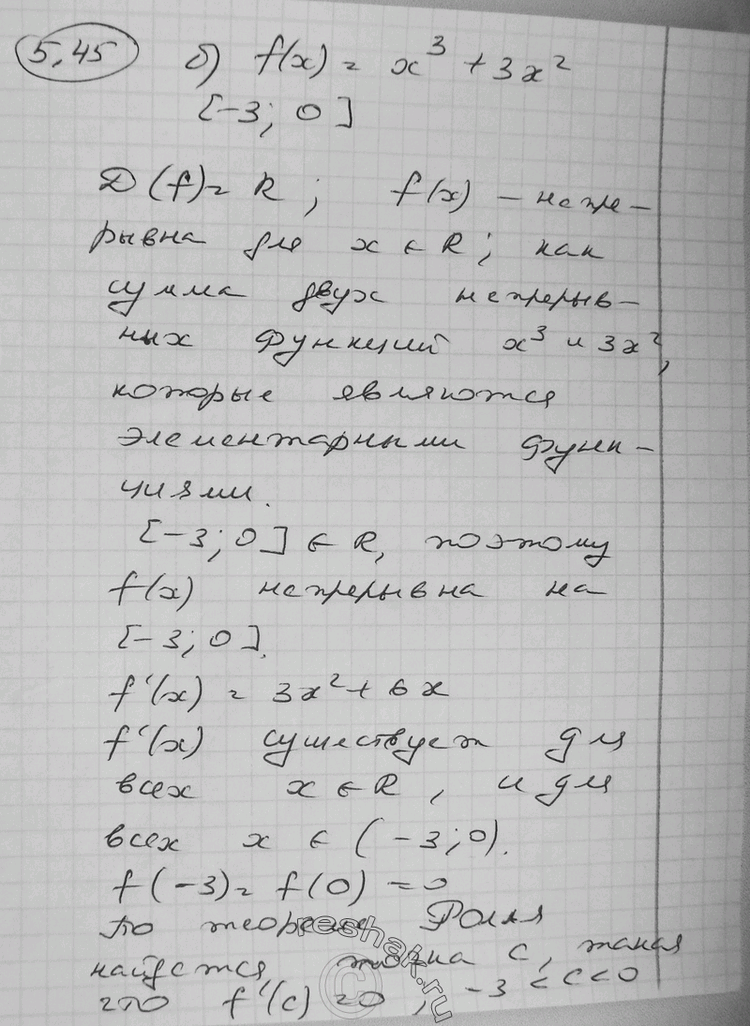 5,45 б) f(x) = x³ + 3x²
[-3; 0]
D(f) = R; f(x) - непре-
рывна для x ∈ R; как
сумма двух непрерыв-
ных функций x³ и 3x²,
которые являются
элементарными функ-
циями.
[-3; 0] ∈ R, поэтому
f(x) непрерывна на
[-3; 0].
f'(x) = 3x² + 6x
f'(x) существует для
всех x ∈ R, и для
всех x ∈ (-3; 0).
f(-3) = f(0) = 0
По теореме Ролля
найдется точка c, такая
что f'(c) = 0, -3 < c < 0
reshak.ru
©